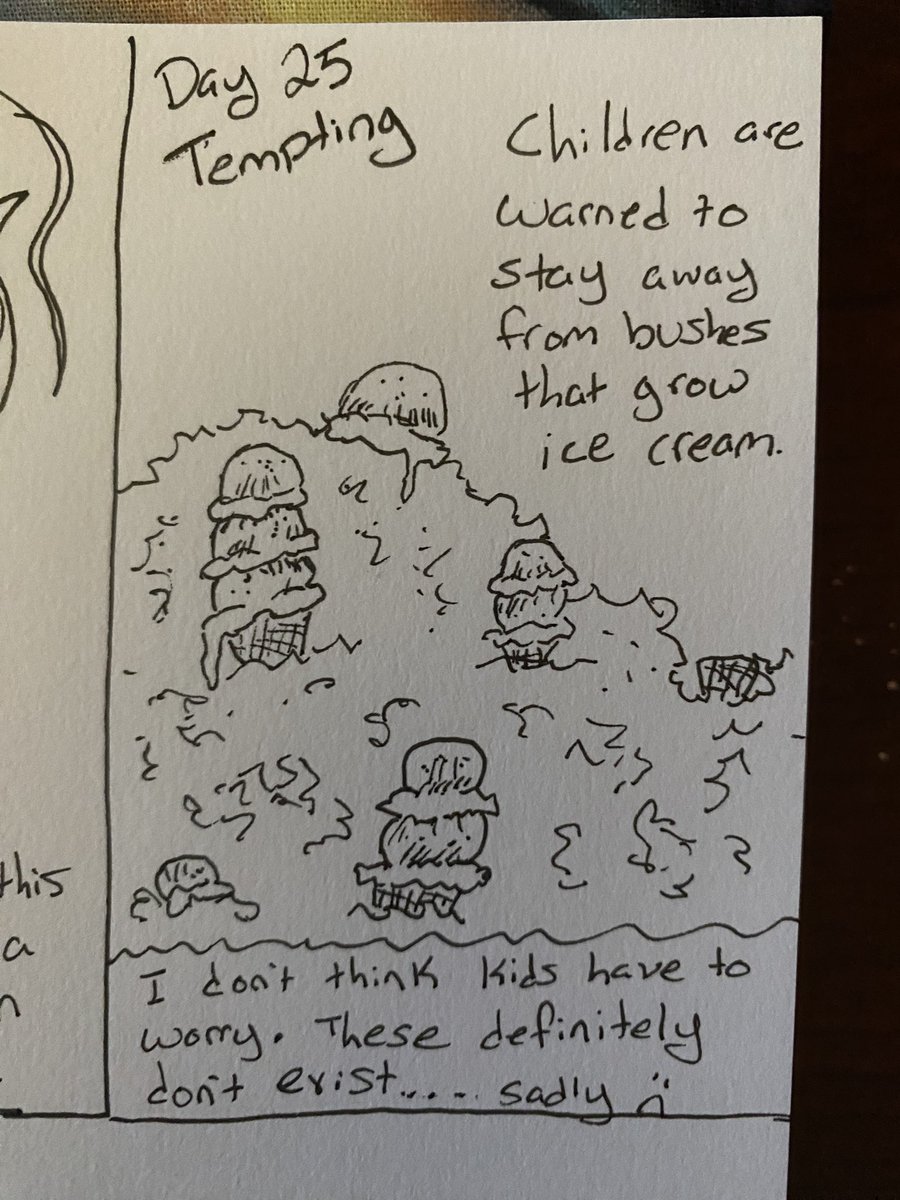 Day 25
Tempting
Children are
warned to
stay away
from bushes
that grow
ice cream.
this
a
I don't think kids have to
worry. These definitely
don't exist.... sadly :(